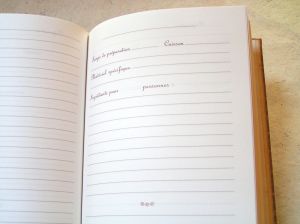 Temps de préparation Cuisson
Matériel spécifique
Ingrédients pour personnes